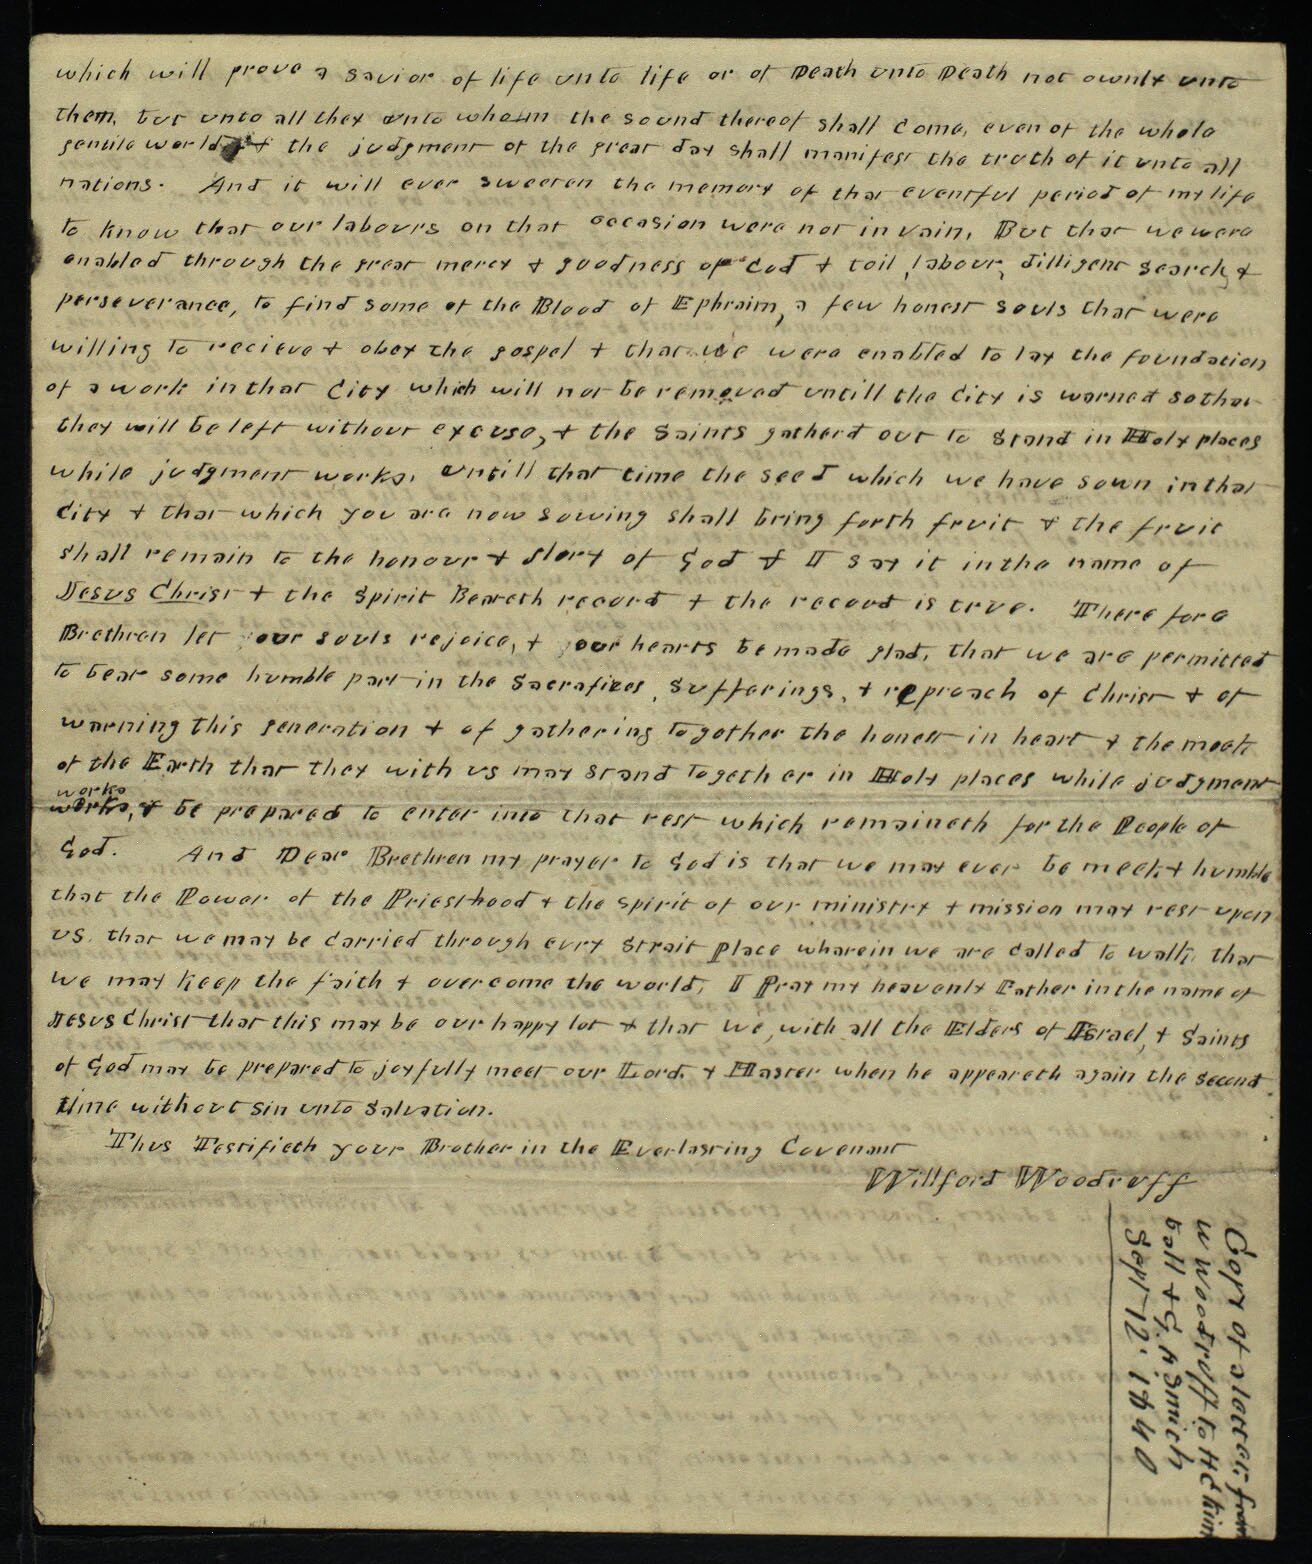 which will prove a savior of life unto life or of Death unto Death not ownly unto
them, but unto all they unto whom the sound thereof shall come, even of the whole
gentile world, & the judgment of the great day shall manifest the truth of it unto all
nations. And it will ever sweeten the memory of that eventful period of my life
to know that our labours on that occasion were not in vain, But that we were
enabled through the great mercy & goodness of God & toil, labour, dilligent search, &
perseverance, to find some of the Blood of Ephraim, a few honest souls that were
willing to recieve & obey the gospel & that we were enabled to lay the foundation
of a work in that City which will not be removed untill the City is warned so that
they will be left without excuse, & the Saints gatherd out to Stand in Holy places
while judgment works. untill that time the seed which we have sown in that
City & that which you are now sowing shall bring forth fruit & the fruit
shall remain to the honour & glory of God & I say it in the name of
Jesus Christ & the Spirit Beareth record & the record is true. There fore
Brethren let our souls rejoice, & our hearts be made glad, that we are permitted
to bear some humble part in the Sacrafizes, Sufferings, & reproach of Christ & of
warning this generation & of gathering together the honest in heart & the meek
of the Earth that they with us may stand together in Holy places while judgment
works
works, & be prepared to enter into that rest which remaineth for the People of
God. And Dear Brethren my prayer to God is that we may ever be meek & humble
that the Power of the Priesthood & the spirit of our ministry & mission may rest upon
us, that we may be Carried through evry Strait place wharein we are Called to walk, that
we may keep the faith & overcome the world, I Pray my heavenly Father in the name of
Jesus Christ that this may be our happy lot & that we, with all the Elders of Israel, & Saints
of God may be prepared to joyfully meet our Lord, & Master when he appeareth again the second
time without sin unto Salvation.
Thus Testifieth your Brother in the Everlasting Covenant
Willford Woodruff
Copy of a letter from
W Woodruff to H C Kim
ball & G. A Smith
Sept 12. 1840